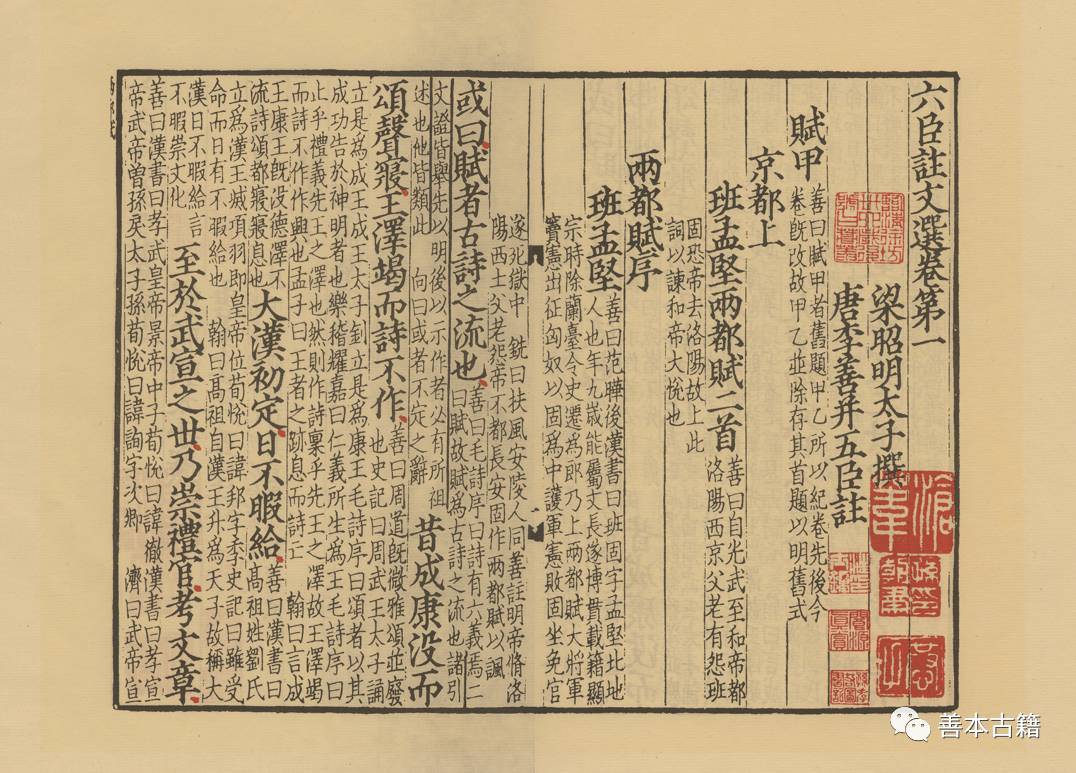 六臣註文選卷第一
梁昭明太子撰
唐李善并五臣註
賦甲 善曰賦甲者舊題甲乙所以紀卷先後今
卷旣改故甲乙並除存其首題以明舊式
京都上
班孟堅兩都賦二首 善曰自光武至和帝都
洛陽西京父老有怨班
固恐帝去洛陽故上此
詞以諫和帝大悅也
兩都賦序
班孟堅 善曰范曄後漢書曰班固字孟堅北地
人也年九歲能屬文長遂博貫載籍顯
宗時除蘭臺令史遷爲郎乃上兩都賦大將軍
竇憲出征匈奴以固爲中護軍憲敗固坐免官
遂死獄中 銑曰扶風安陵人同善註明帝脩洛
陽西土父老怨帝不都長安固作兩都賦以諷
或曰賦者古詩之流也 善曰毛詩序曰詩有六義焉二
曰賦故賦爲古詩之流也諸引
文證皆舉先以明後以示作者必有所祖
述也他皆類此 向曰或者不定之辭
昔成康没而
頌聲寢王澤竭而詩不作 善曰周道旣微雅頌並廢
也史記曰周武王太子誦
立是爲成王成王太子釗立是爲康王毛詩序曰頌者以其
成功告於神明者也樂稽耀嘉曰仁義所生爲王毛詩序曰
止乎禮義先王之澤也然則作詩稟乎先王之澤故王澤竭
而詩不作作興也孟子曰王者之跡息而詩亡 翰曰言成
王康王旣没德澤不
流詩頌都寢寢息也
大漢初定日不暇給 善曰漢書曰
高祖姓劉氏
立爲漢王滅項羽即皇帝位荀悅曰諱邦字季史記曰雖受
命而日有不暇給也 翰曰高祖自漢王升爲天子故稱大
漢日不暇給言
不暇崇文化
至於武宣之世乃崇禮官考文章
善曰漢書曰孝武皇帝景帝中子荀悅曰諱徹漢書曰孝宣
帝武帝曾孫戾太子孫荀悅曰諱詢字次卿 濟曰武帝宣
善本古籍